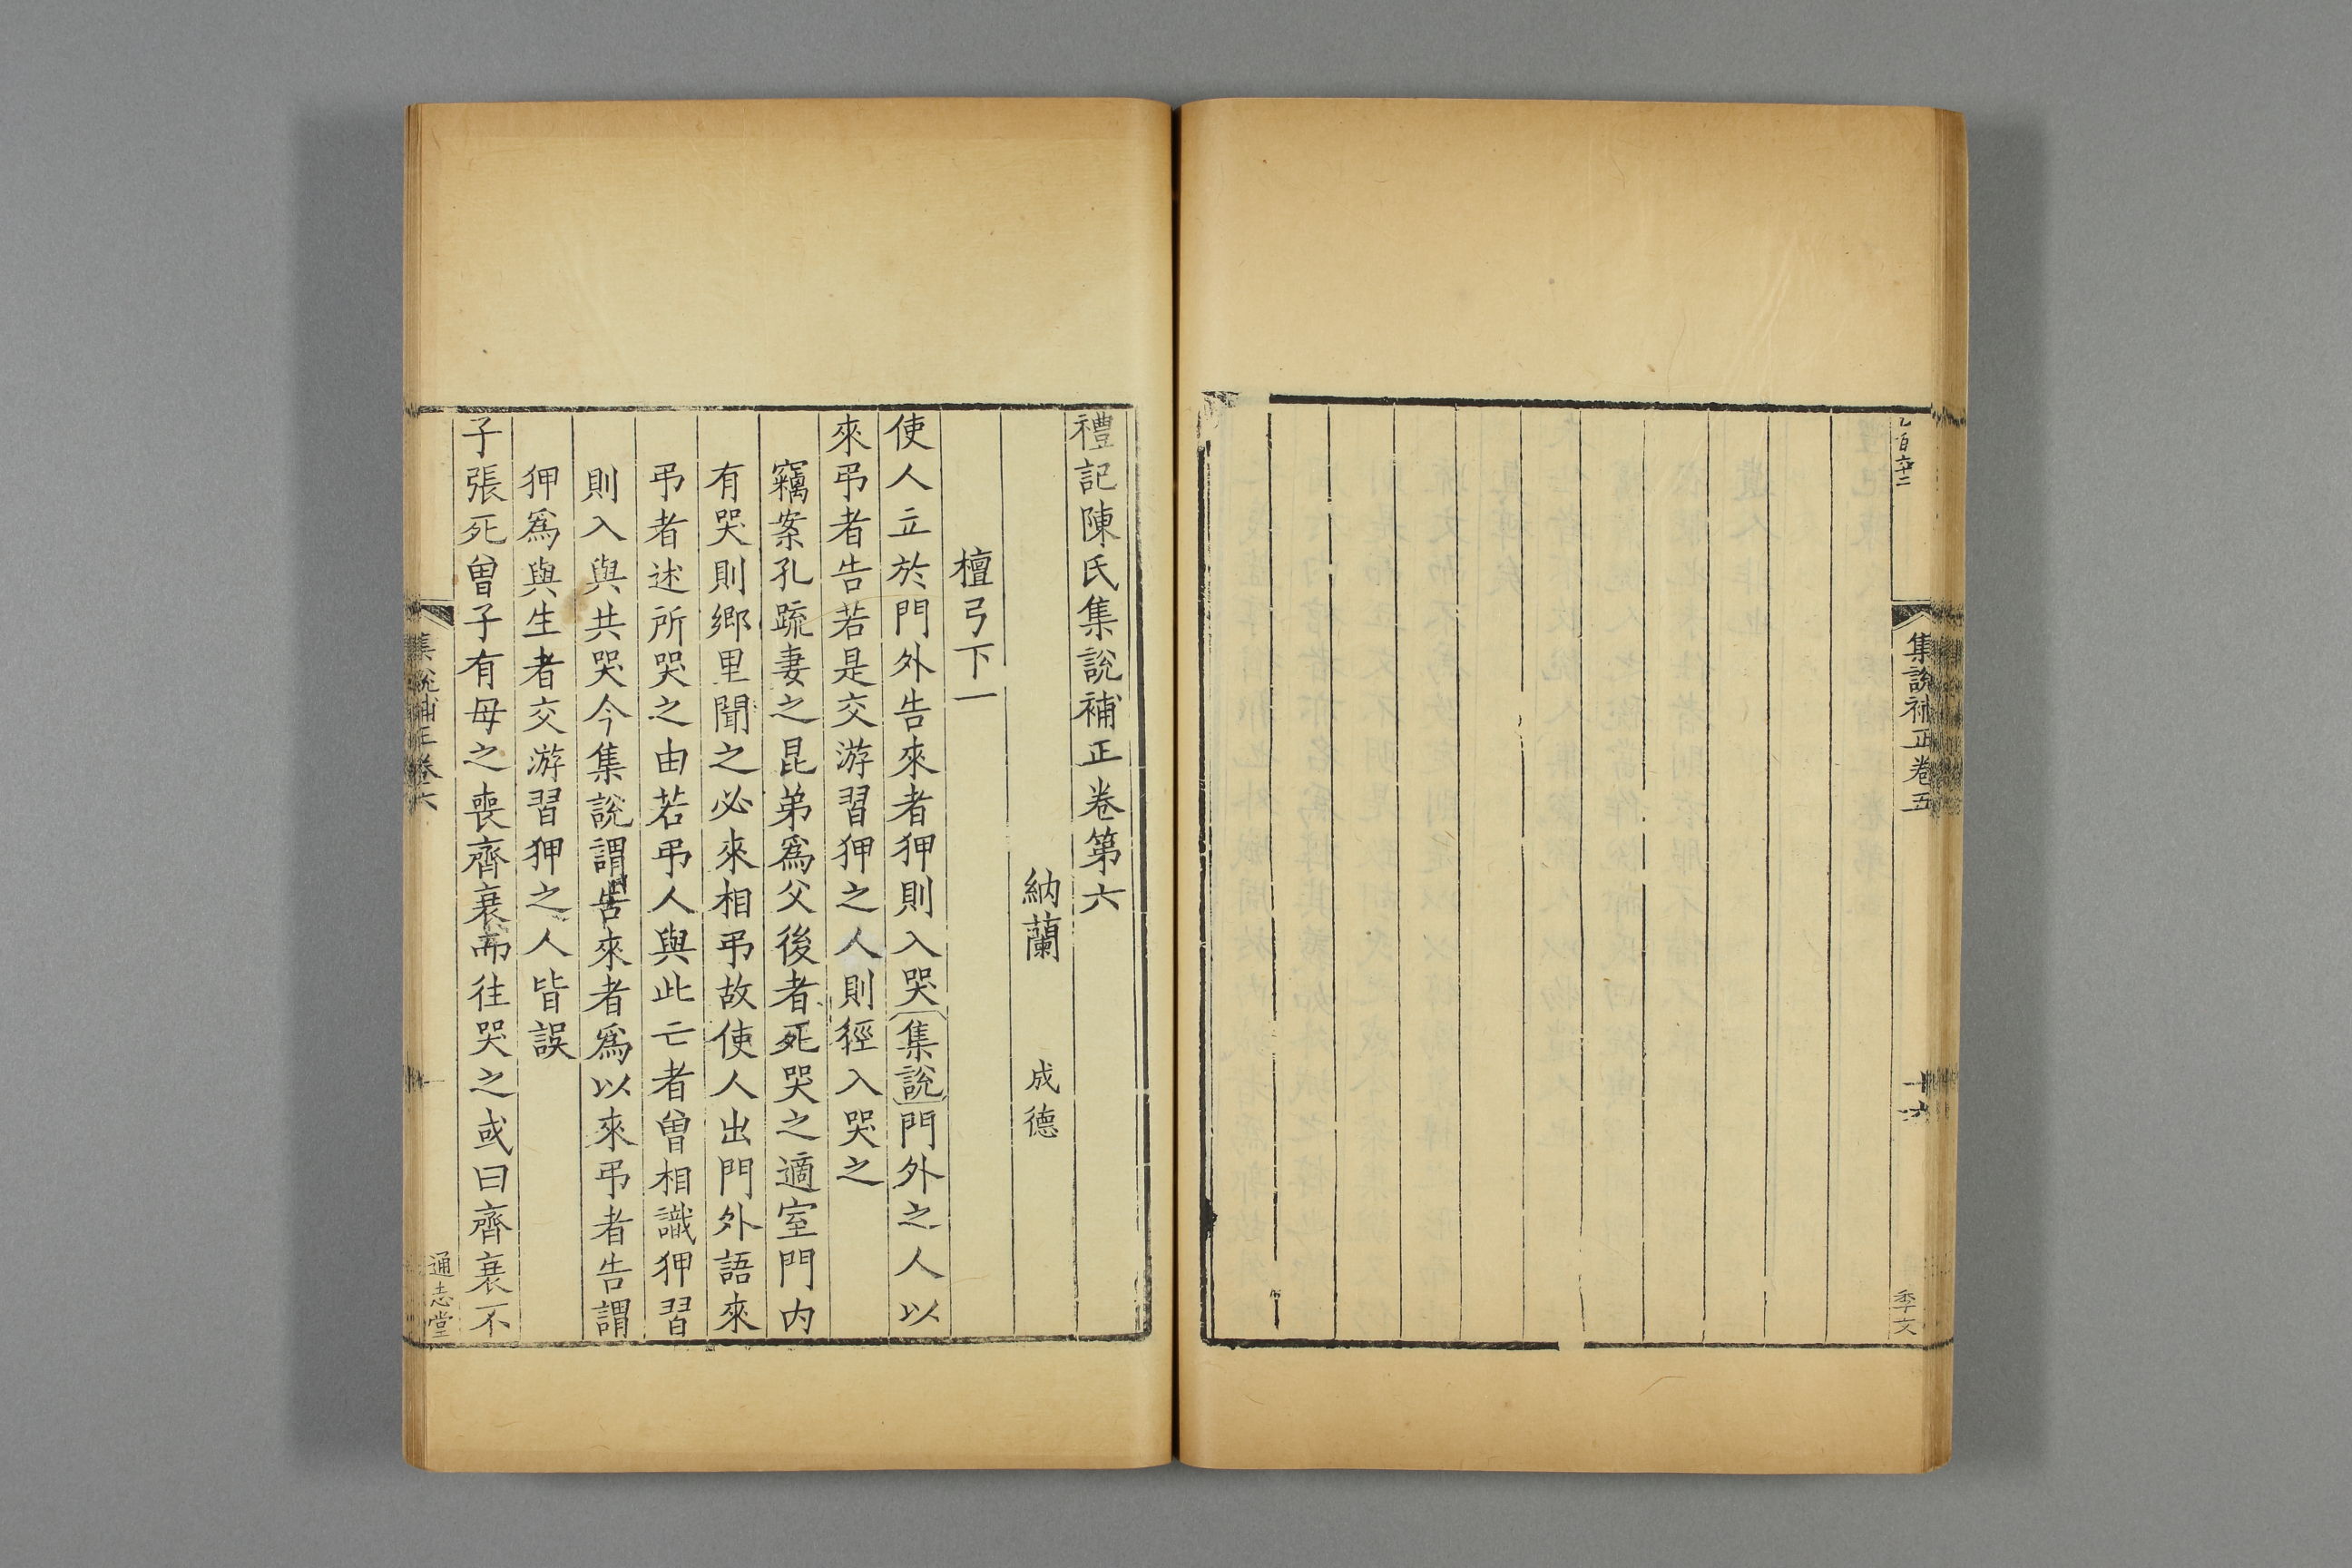 集說補正卷五
十六
季文
禮記陳氏集說補正卷第六
納蘭 成德
檀弓下一
使人立於門外告來者狎則入哭集說門外之人以
來弔者告若是交游習狎之人則徑入哭之
竊案孔疏妻之昆弟爲父後者死哭之適室門內
有哭則鄉里聞之必來相弔故使人出門外語來
弔者述所哭之由若弔人與此亡者曾相識狎習
則入與共哭今集說謂告來者爲以來弔者告謂
狎爲與生者交游習狎之人皆誤
子張死曾子有母之喪齊衰而往哭之或曰齊衰不
集說補正卷六
一
通志堂